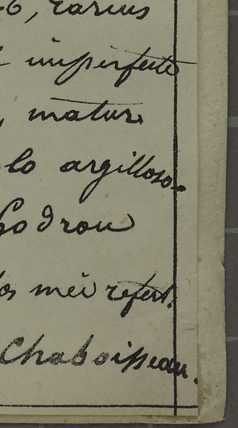 6, rarius
imperfecte
, mature
lo argilloso-
odrou
os mei refert.
Chaboisseau.